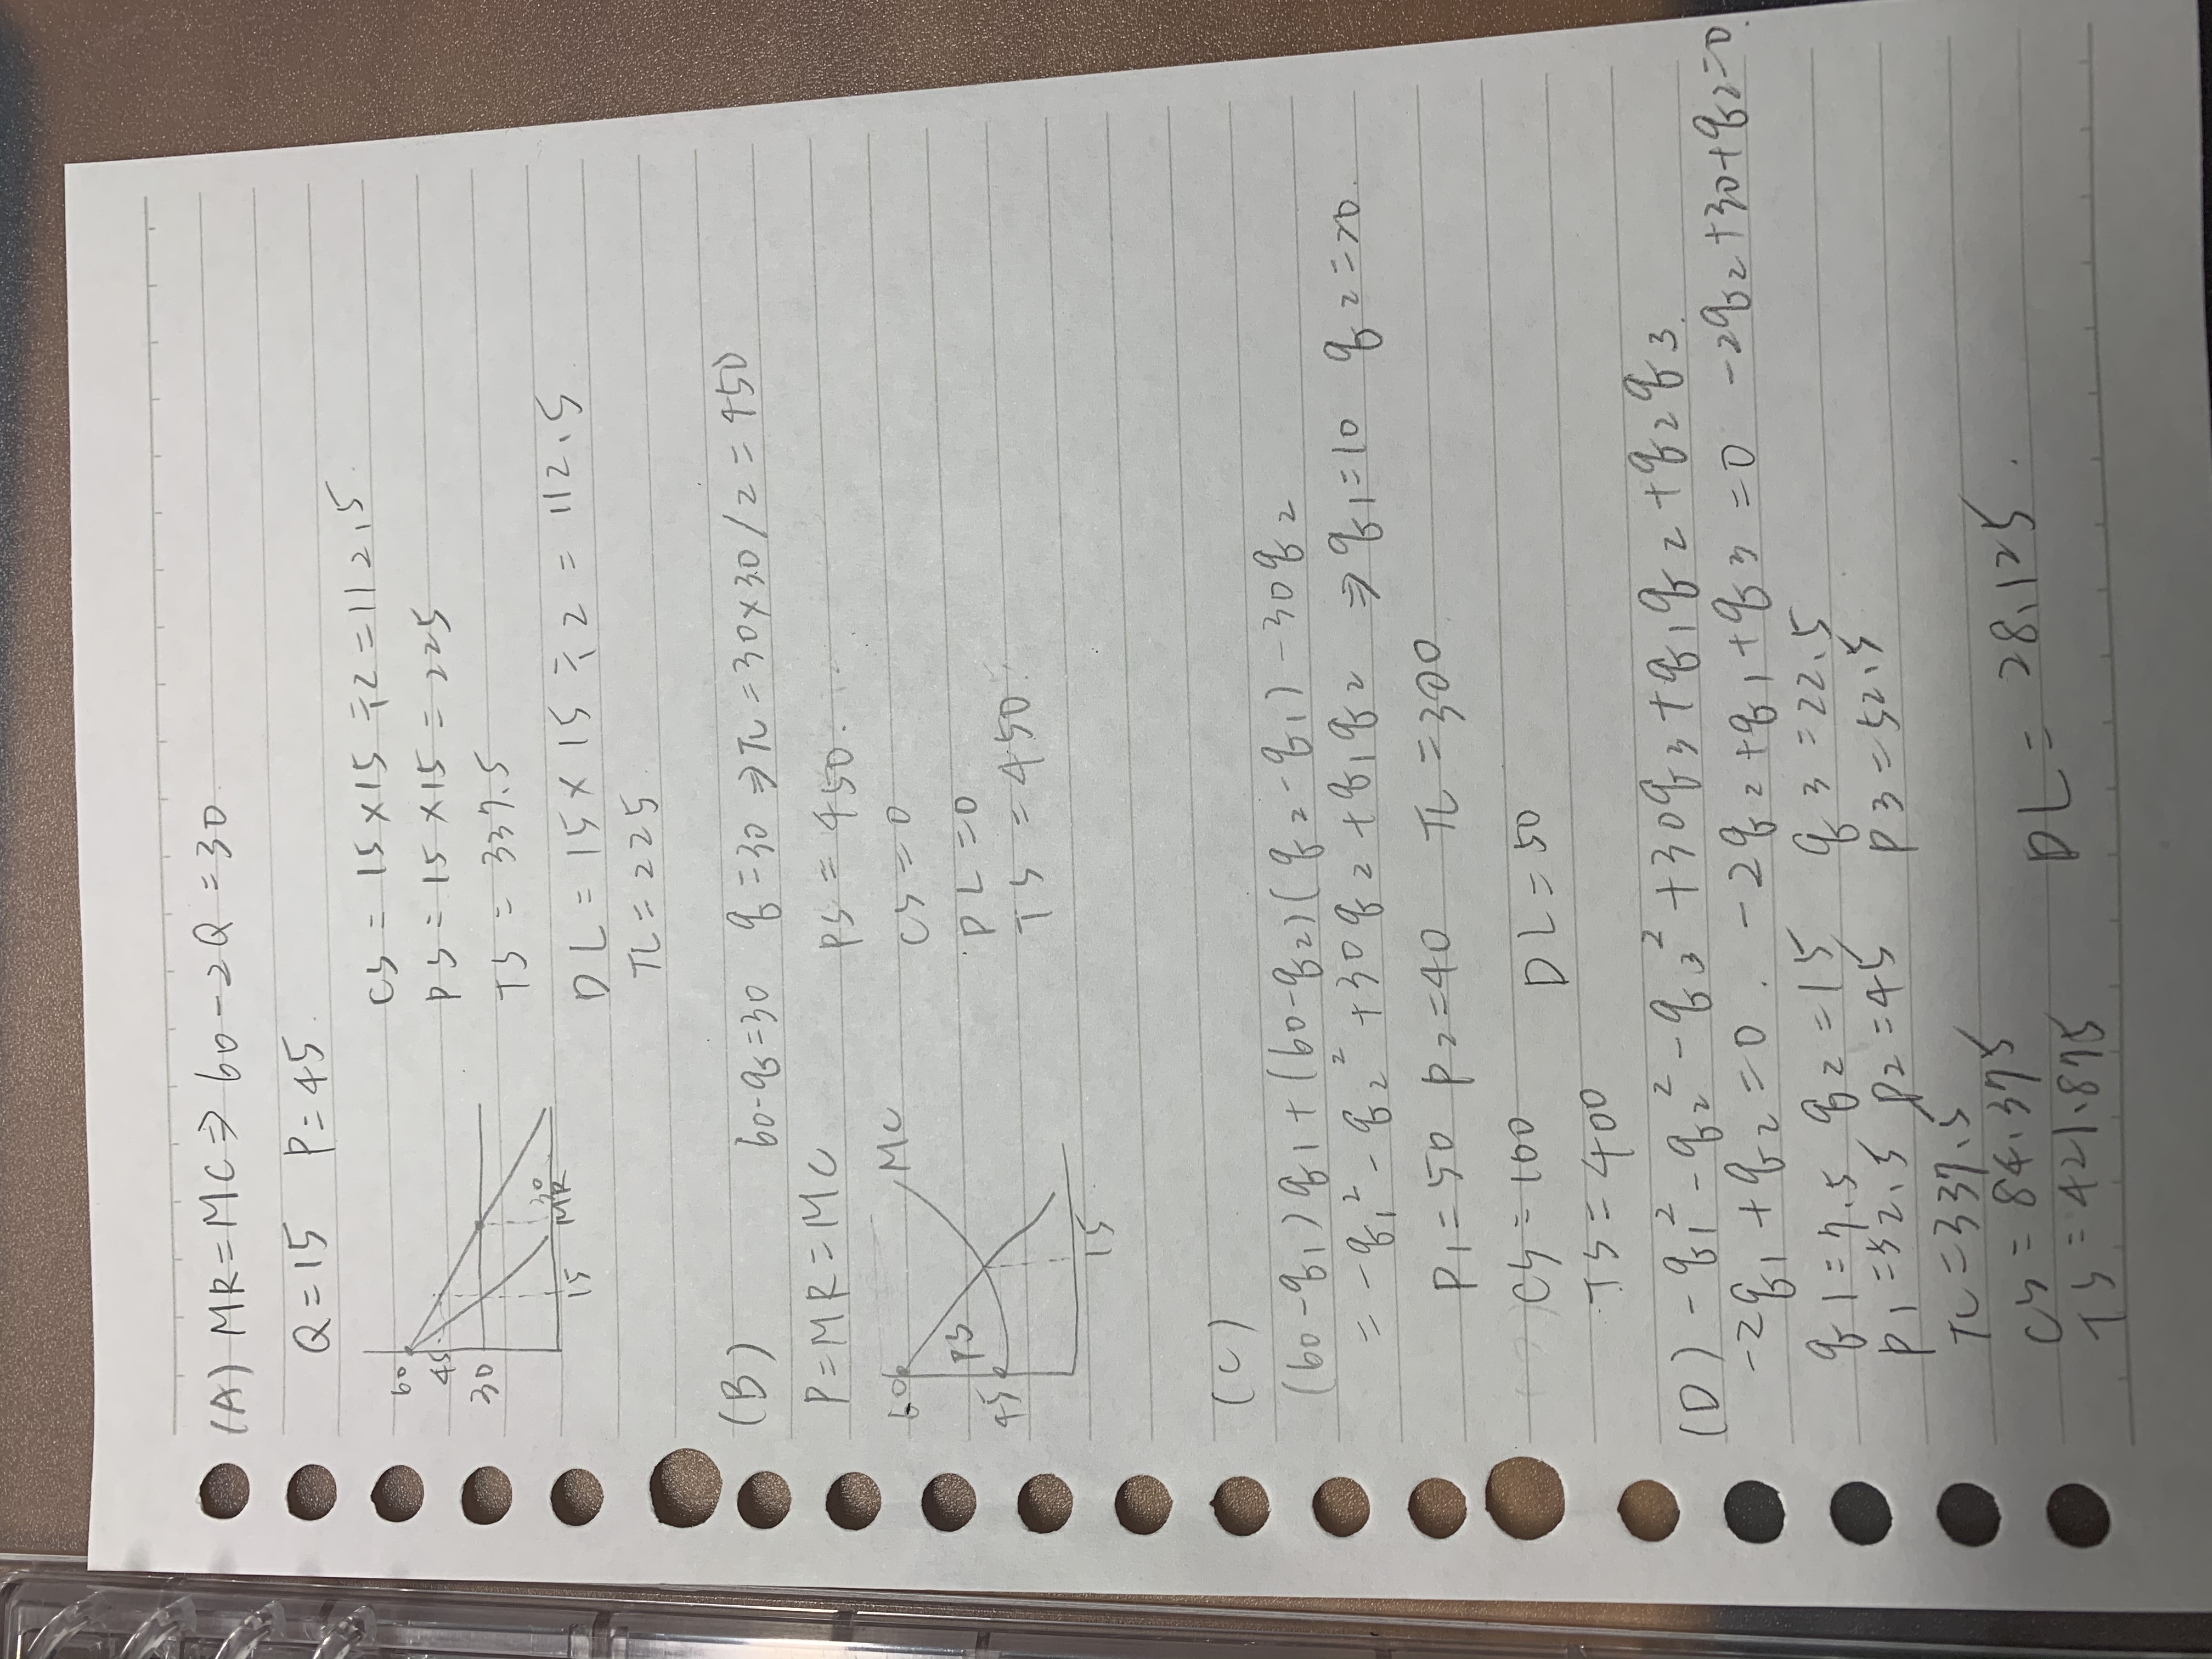 (A) MR=MC⇒ 60-2Q=30
Q=15 P=45.
CS = 15×15÷2=112.5.
60
45
PS = 15×15=225
30
TS = 337.5
30
15 MR
DL = 15×15÷2 = 112.5
π=225
(B) 60-q=30 q=30 ⇒π=30×30/2=450
P=MR=MC
PS = 450.
60
MC
CS=0
PS
DL=0
45
TS = 450.
15
(C)
(60-q₁)q₁+(60-q₂)(q₂-q₁)-30q₂
= -q₁²-q₂²+30q₂+q₁q₂ ⇒q₁=10 q₂=20.
P₁=50 P₂=40 π=300
CS=100 DL=50
TS=400
(D) -q₁²-q₂²-q₃²+30q₃+q₁q₂+q₂q₃.
-2q₁+q₂=0. -2q₂+q₁+q₃=0 -2q₂+30+q₂=0.
q₁=7.5 q₂=15 q₃=22.5
P₁=52.5 P₂=45 P₃=52.5
π=337.5
CS=84.375
DL= 28.125.
TS=421.875